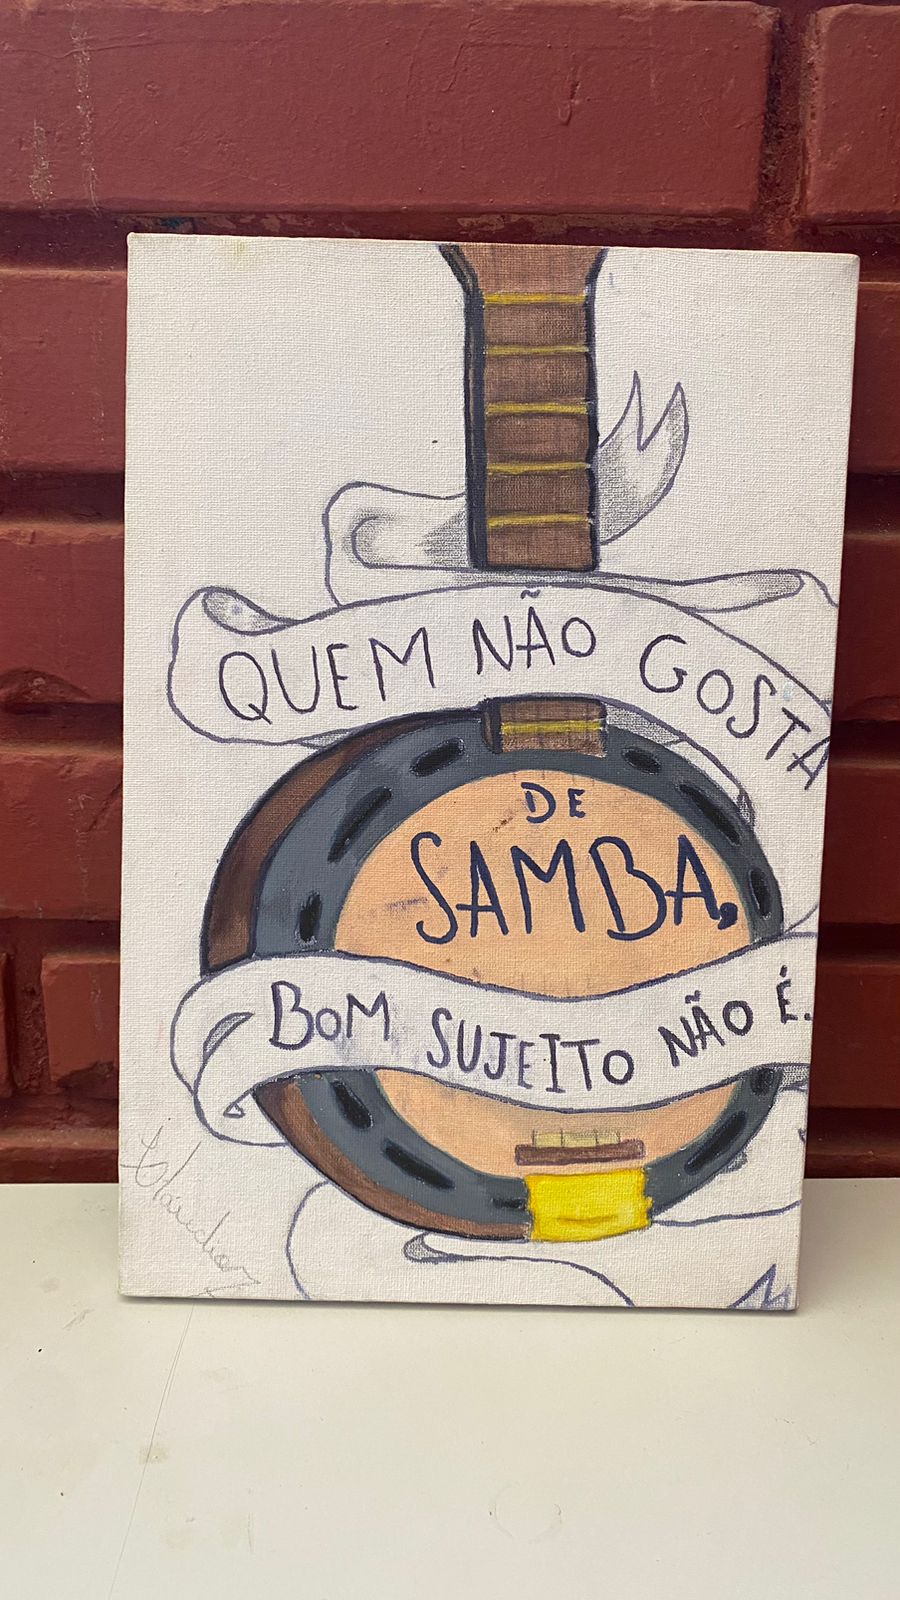 QUEM NÃO GOSTA
DE
SAMBA,
BOM SUJEITO NÃO É.